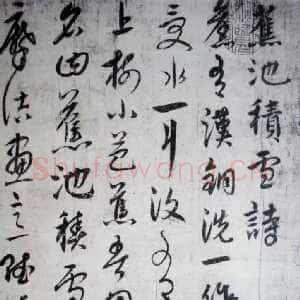 蕉池積雪詩
舊有漢銅洗一作
受水一斗汝
上梅小芭蕉
名曰蕉池積雪
摩詰畫意
Shufawang.CN